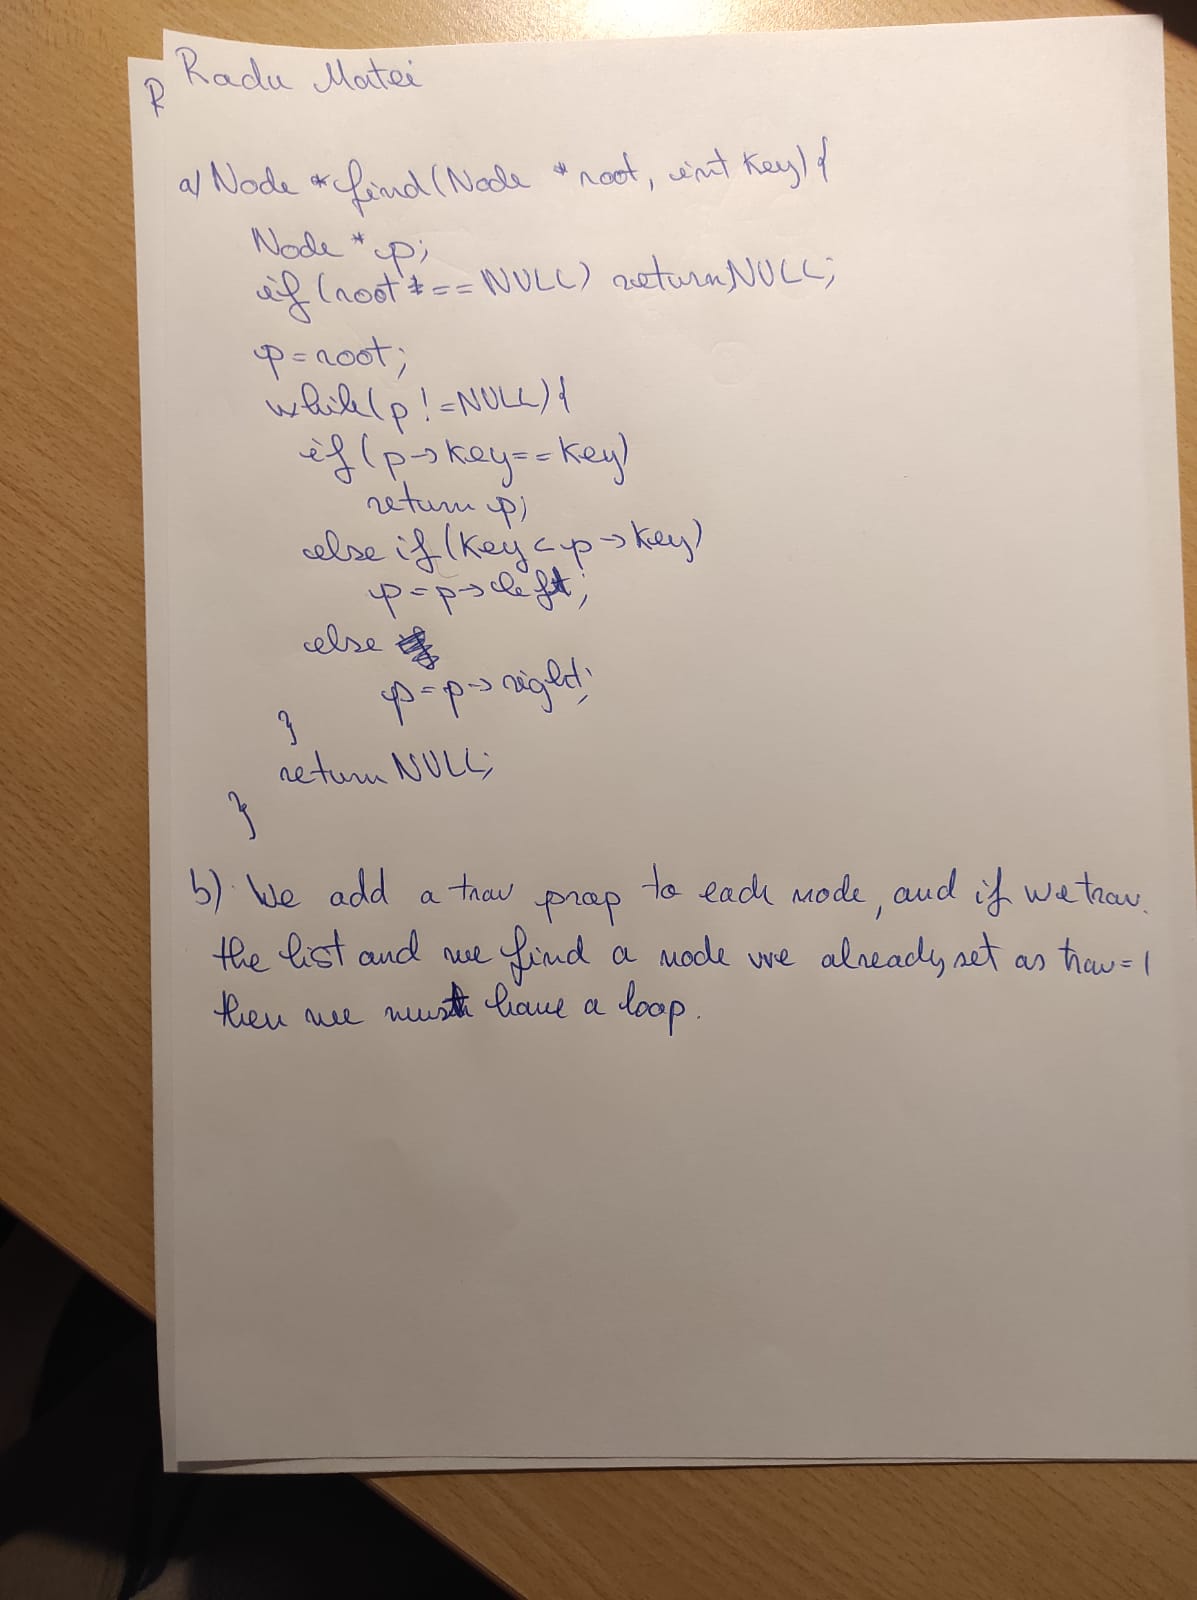 Radu Matei
R
a) Node *find(Node *root, int key){
Node *p;
if (root *== NULL) return NULL;
p=root;
while(p!=NULL){
if (p->key==key)
return p;
else if (key<p->key)
p=p->left;
else
p=p->right;
}
return NULL;
}
b). We add a trav prop to each node, and if we trav.
the list and we find a node we already set as trav=1
then we must have a loop.